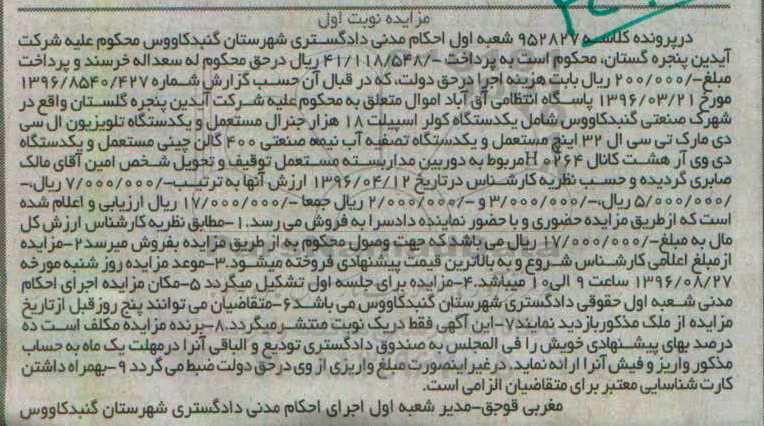 مزایده نوبت اول
درپرونده کلاسه ۹۵۲۸۲۷ شعبه اول احکام مدنی دادگستری شهرستان گنبدکاووس محکوم علیه شرکت
آیدین پنجره گستان، محکوم است به پرداخت -/۴۱/۱۱۸/۵۴۸ ریال درحق محکوم له سعداله خرسند و پرداخت
مبلغ-/۲۰۰/۰۰۰ ریال بابت هزینه اجرا درحق دولت، که در قبال آن حسب گزارش شماره ۱۳۹۶/۸۵۴۰/۴۲۷
مورخ ۱۳۹۶/۰۳/۲۱ پاسگاه انتظامی آق آباد اموال متعلق به محکوم علیه شرکت آیدین پنجره گلستان واقع در
شهرک صنعتی گنبدکاووس شامل یکدستگاه کولر اسپیلت ۱۸ هزار جنرال مستعمل و یکدستگاه تلویزیون ال سی
دی مارک تی سی ال ۳۲ اینچ مستعمل و یکدستگاه تصفیه آب نیمه صنعتی ۴۰۰ گالن چینی مستعمل و یکدستگاه
دی وی آر هشت کانال H۰۲۶۴مربوط به دوربین مداربسته مستعمل توقیف و تحویل شخص امین آقای مالک
صابری گردیده و حسب نظریه کارشناس درتاریخ ۱۳۹۶/۰۴/۱۲ ارزش آنها به ترتیب-/۷/۰۰۰/۰۰۰ ریال،-
/۵/۰۰۰/۰۰۰ ریال،-/۳/۰۰۰/۰۰۰ و -/۲/۰۰۰/۰۰۰ ریال جمعا -/۱۷/۰۰۰/۰۰۰ ریال ارزیابی و اعلام شده
است که ازطریق مزایده حضوری و با حضور نماینده دادسرا به فروش می رسد.۱-مطابق نظریه کارشناس ارزش کل
مال به مبلغ-/۱۷/۰۰۰/۰۰۰ ریال می باشد که جهت وصول محکوم به از طریق مزایده بفروش میرسد۲-مزایده
از مبلغ اعلامی کارشناس شروع و به بالاترین قیمت پیشنهادی فروخته میشود.۳-موعد مزایده روز شنبه مورخه
۱۳۹۶/۰۸/۲۷ ساعت ۹ الی۱۰ میباشد.۴-مزایده برای جلسه اول تشکیل میگردد ۵-مکان مزایده اجرای احکام
مدنی شعبه اول حقوقی دادگستری شهرستان گنبدکاووس می باشد۶-متقاضیان می توانند پنج روز قبل ازتاریخ
مزایده از ملک مذکور بازدید نمایند۷-این آگهی فقط دریک نوبت منتشر میگردد.۸-برنده مزایده مکلف است ده
درصد بهای پیشنهادی خویش را فی المجلس به صندوق دادگستری تودیع و الباقی آنرا درمهلت یک ماه به حساب
مذکور واریز و فیش آنرا ارائه نماید. درغیر اینصورت مبلغ واریزی از وی در حق دولت ضبط می گردد ۹-بهمراه داشتن
کارت شناسایی معتبر برای متقاضیان الزامی است.
مغربی قوجق-مدیر شعبه اول اجرای احکام مدنی دادگستری شهرستان گنبدکاووس